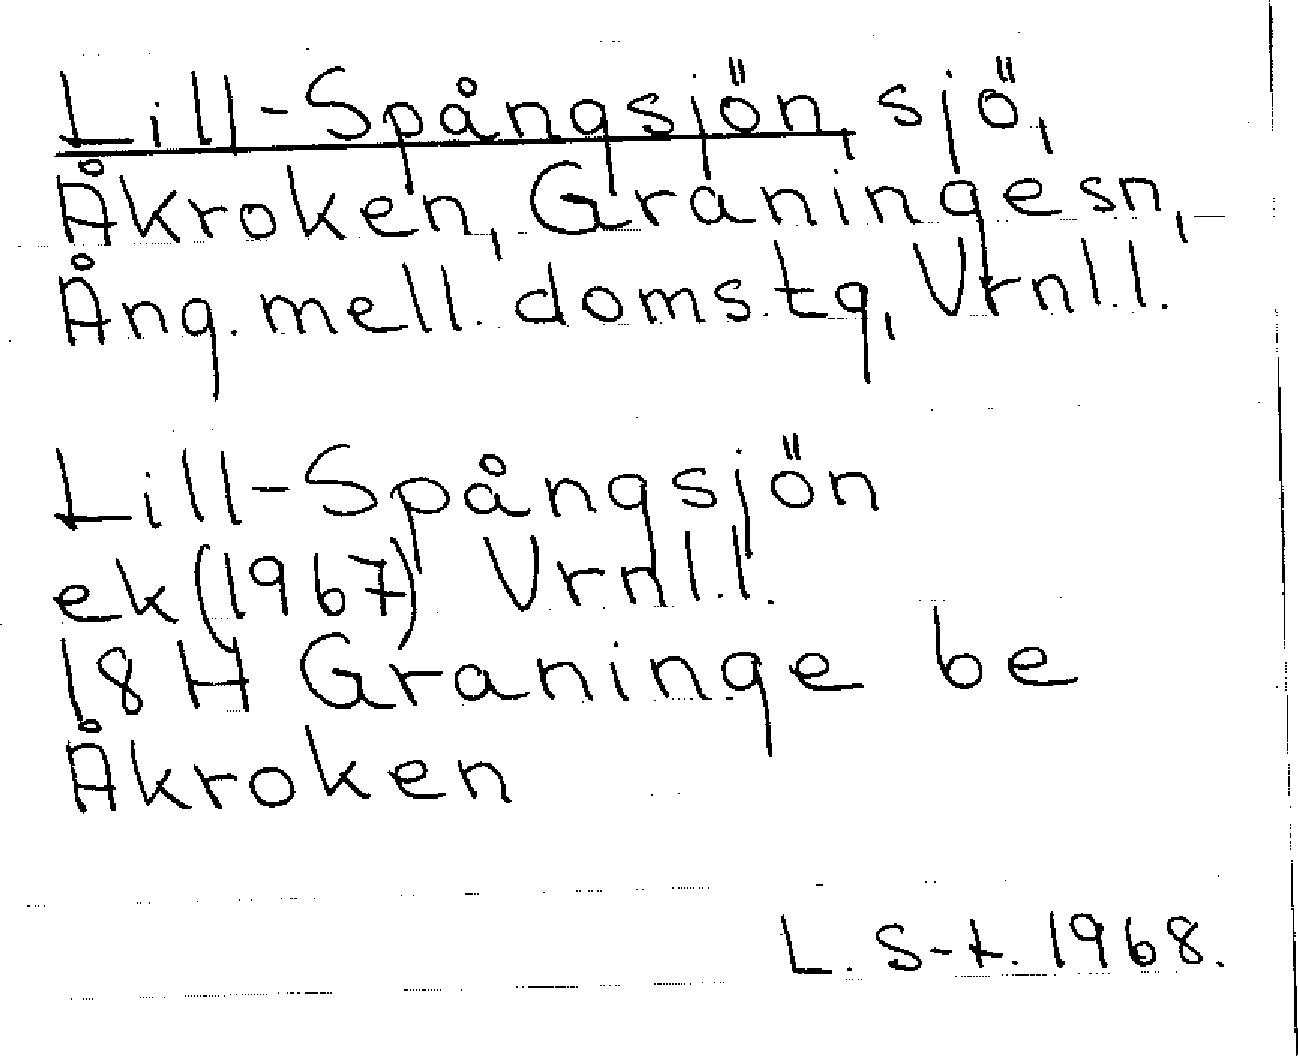 Lill-Spångsjön, sjö,
Åkroken, Graninge sn,
Ång. mell. domstg, Vrnl.l.
Lill-Spångsjön
ek (1967) Vrnl.l.
18 H Graninge be
Åkroken
L. S-t. 1968.